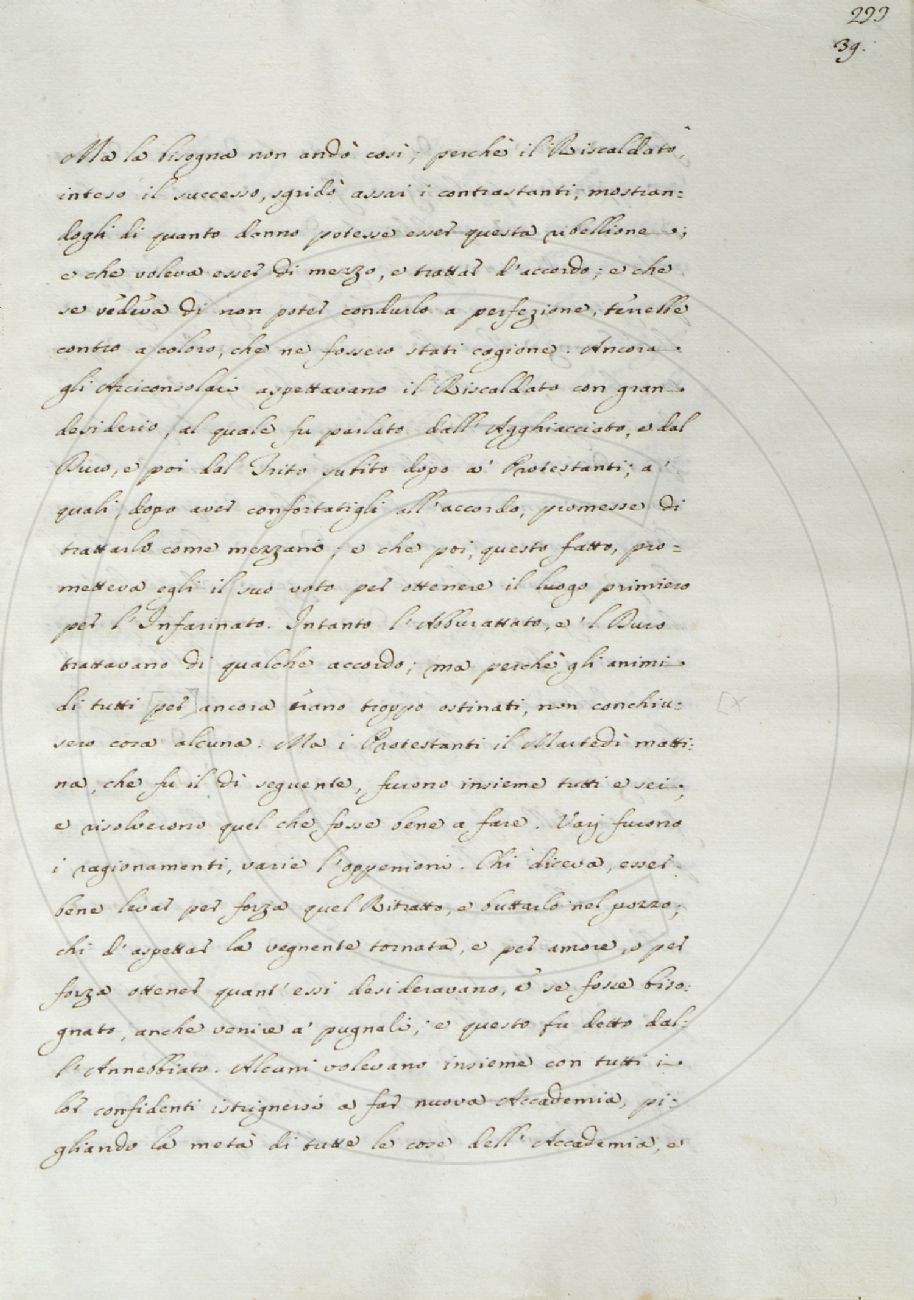 299
39.
Ma la bisogna non andò così; perchè il Riscaldato,
inteso il successo, sgridò assai i contrastanti, mostran=
dogli di quanto danno potesse esser questa ribellione;
e che voleva esser di mezzo, e trattar d'accordo; e che
se vedeva di non poter condurlo a perfezione, terrebbe
contro a coloro, che ne fossero stati cagione. Ancora
gli Arciconsolari aspettavano il Riscaldato con gran
desiderio, al quale fu parlato dall'Agghiacciato, e dal
Duro, e poi dal Trito subito dopo a' Protestanti; a'
quali, dopo aver confortatigli all'accordo, promesse di
trattarlo come mezzano; e che poi, questo fatto, pro=
metteva egli il suo voto per ottenere il luogo primiero
per l'Infarinato. Intanto l'Abburattato, e 'l Duro
trattavano di qualche accordo; ma perchè gli animi
di tutti [per] ancora erano troppo ostinati, non conchiu= [x
sero cosa alcuna. Ma i Protestanti il Martedì matti=
na, che fu il dì seguente, furono insieme tutti e sei;
e risolverono quel che fosse bene a fare. Varj furono
i ragionamenti, varie l'oppenioni. Chi diceva, esser
bene levar per forza quel Ritratto, e buttarlo nel pozzo;
chi d'aspettar la vegnente tornata, e per amore, o per
forza ottener quant'essi desideravano, e se fosse biso=
gnato, anche venire a' pugnali; e questo fu detto dal=
l'Annebbiato. Alcuni volevano insieme con tutti i
lor confidenti istrignersi a far nuova Accademia, pi=
gliando la metà di tutte le cose dell'Accademia, e